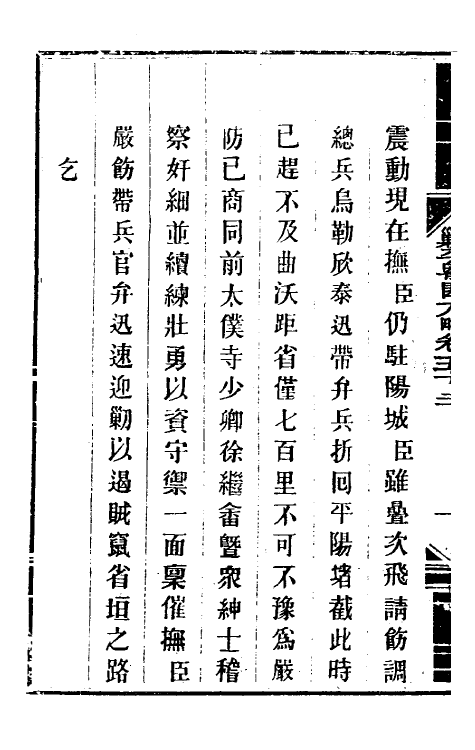 震動現在撫臣仍駐陽城臣雖疊次飛請飭調
總兵烏勒欣泰迅帶弁兵折囘平陽堵截此時
已趕不及曲沃距省僅七百里不可不豫爲嚴
防已商同前太僕寺少卿徐繼畬曁衆紳士稽
察奸細並續練壯勇以資守禦一面稟催撫臣
嚴飭帶兵官弁迅速迎勦以遏賊竄省垣之路
乞